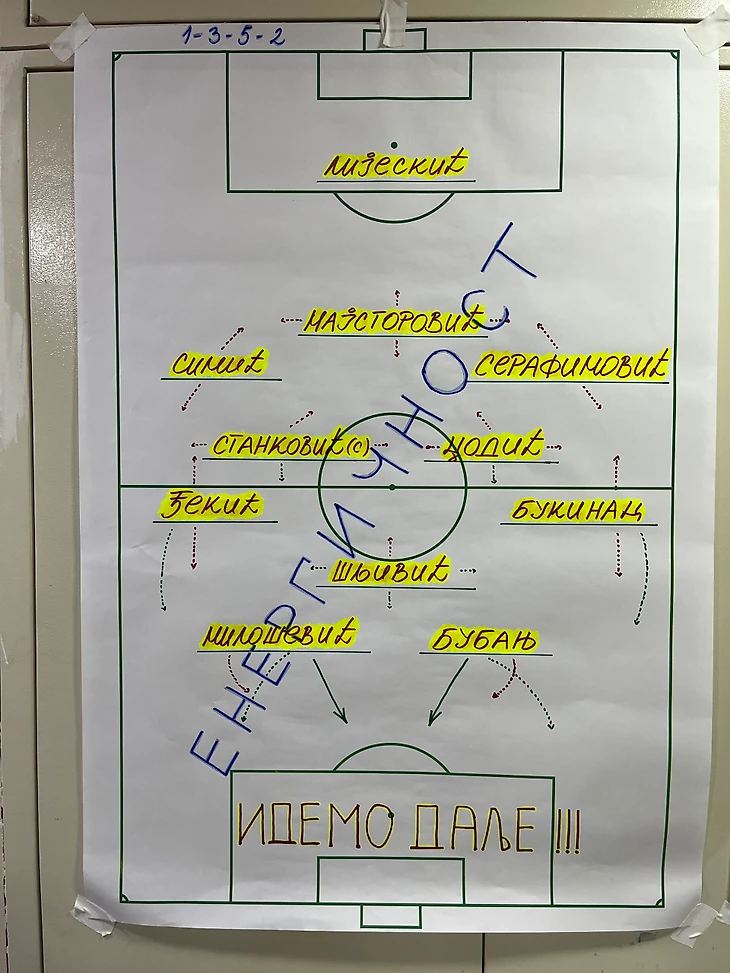 1-3-5-2
Лијескић
МАЈСТОРОВИЋ
СИМИЋ
СЕРАФИМОВИЋ
СТАНКОВИЋ (C)
ЏОДИЋ
ЂЕКИЋ
БУКИНАЦ
ШЉИВИЋ
МИЛОШЕВИЋ
БУБАЊ
ЕНЕРГИЧНОСТ
ИДЕМО ДАЉЕ !!!